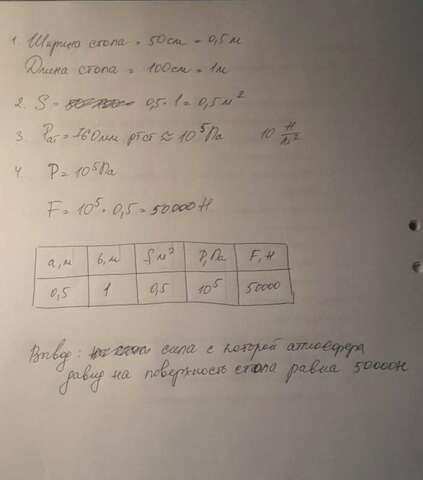 1. Ширина стола = 50см = 0,5м
Длина стола = 100см = 1м
2. S = 0,5 · 1 = 0,5 м²
3. Pат = 760мм рт ст ≈ 10⁵Па 10 Н/м²
4. P = 10⁵Па
F = 10⁵ · 0,5 = 50000 Н
а, м b, м S, м² P, Па F, Н
0,5 1 0,5 10⁵ 50000
Вывод: сила с которой атмосфера
давит на поверхность стола равна 50000Н